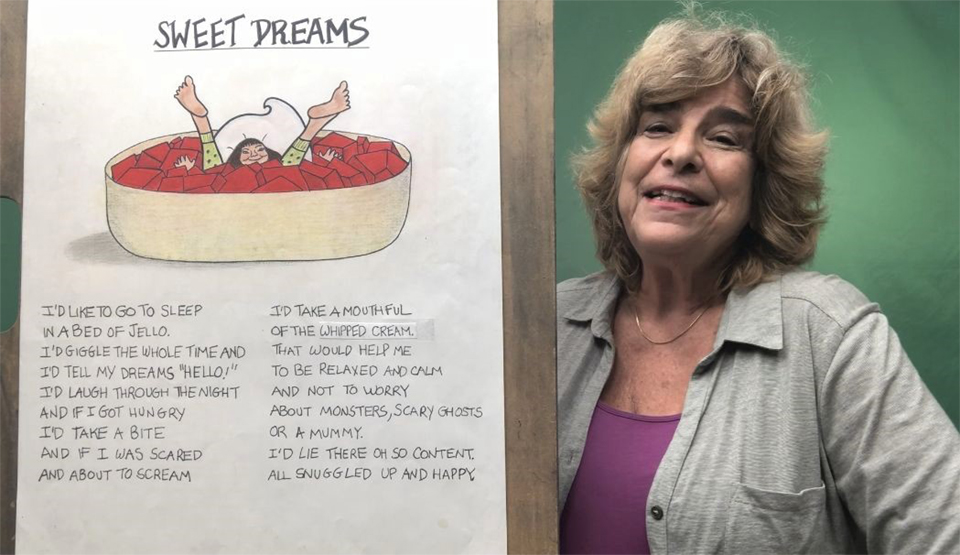 SWEET DREAMS
I'D LIKE TO GO TO SLEEP
IN A BED OF JELLO.
I'D GIGGLE THE WHOLE TIME AND
I'D TELL MY DREAMS "HELLO!"
I'D LAUGH THROUGH THE NIGHT
AND IF I GOT HUNGRY
I'D TAKE A BITE
AND IF I WAS SCARED
AND ABOUT TO SCREAM
I'D TAKE A MOUTHFUL
OF THE WHIPPED CREAM.
THAT WOULD HELP ME
TO BE RELAXED AND CALM
AND NOT TO WORRY
ABOUT MONSTERS, SCARY GHOSTS
OR A MUMMY.
I'D LIE THERE OH SO CONTENT.
ALL SNUGGLED UP AND HAPPY.